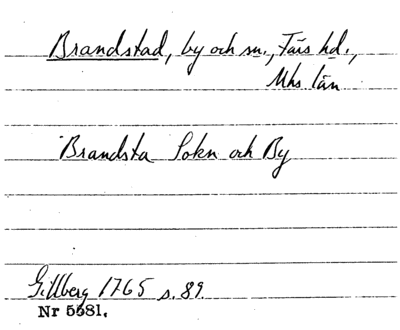 Brandstad, by och sn., Färs hd.,
Mhs län
Brandsta Sokn och By
Gillberg 1765 s. 89.
Nr 5581.